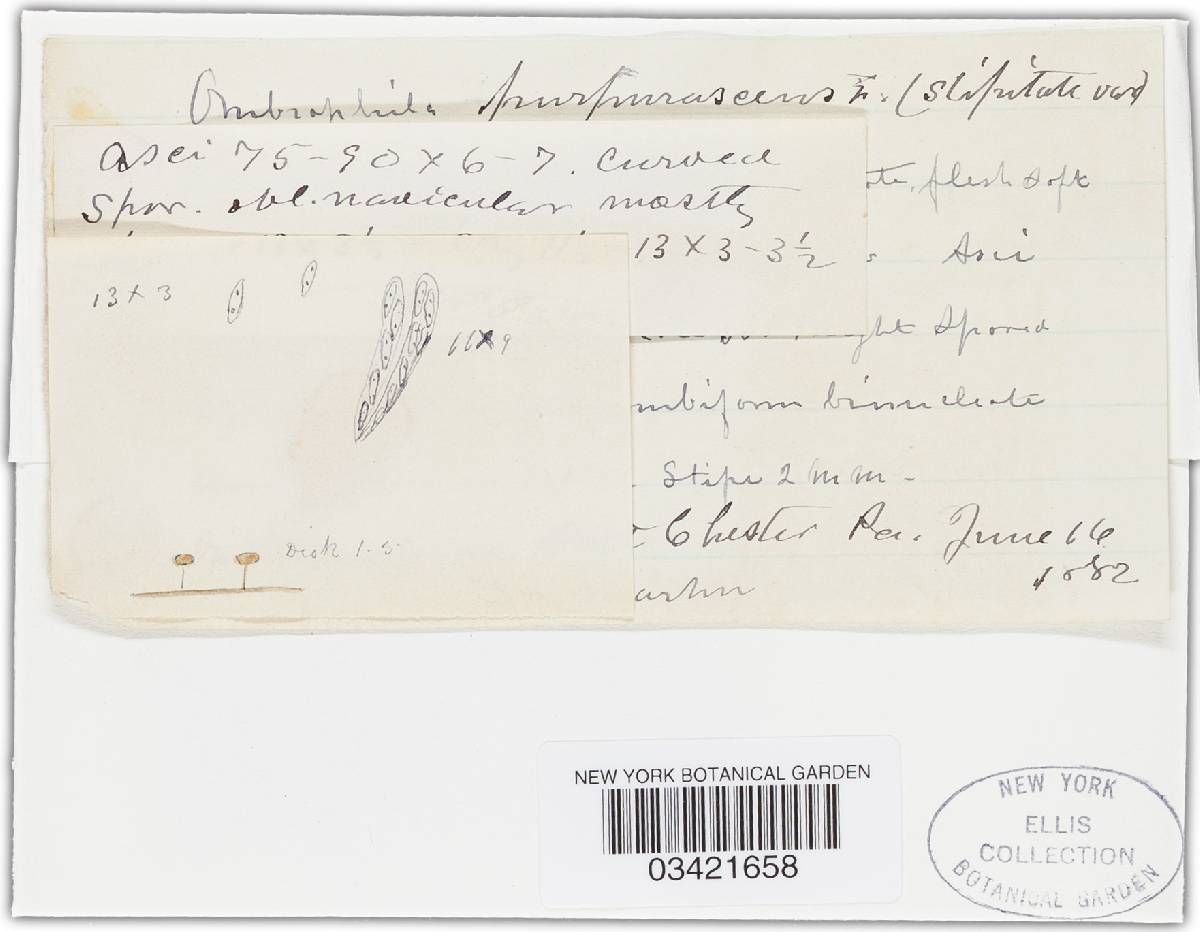 Ombrophila purpurascens Fr. (Stipitate var)
Asci 75-90 x 6-7. curved
Spor. obl. navicular mostly
13 x 3-3½
flesh soft
Asci
ght Spored
mbiform binucleate
Stipe 2 mm -
Chester Pa. June 16
1882
artin
13 x 3
66 x 9
Disk 1.5
NEW YORK BOTANICAL GARDEN
03421658
NEW YORK
ELLIS
COLLECTION
BOTANICAL GARDEN